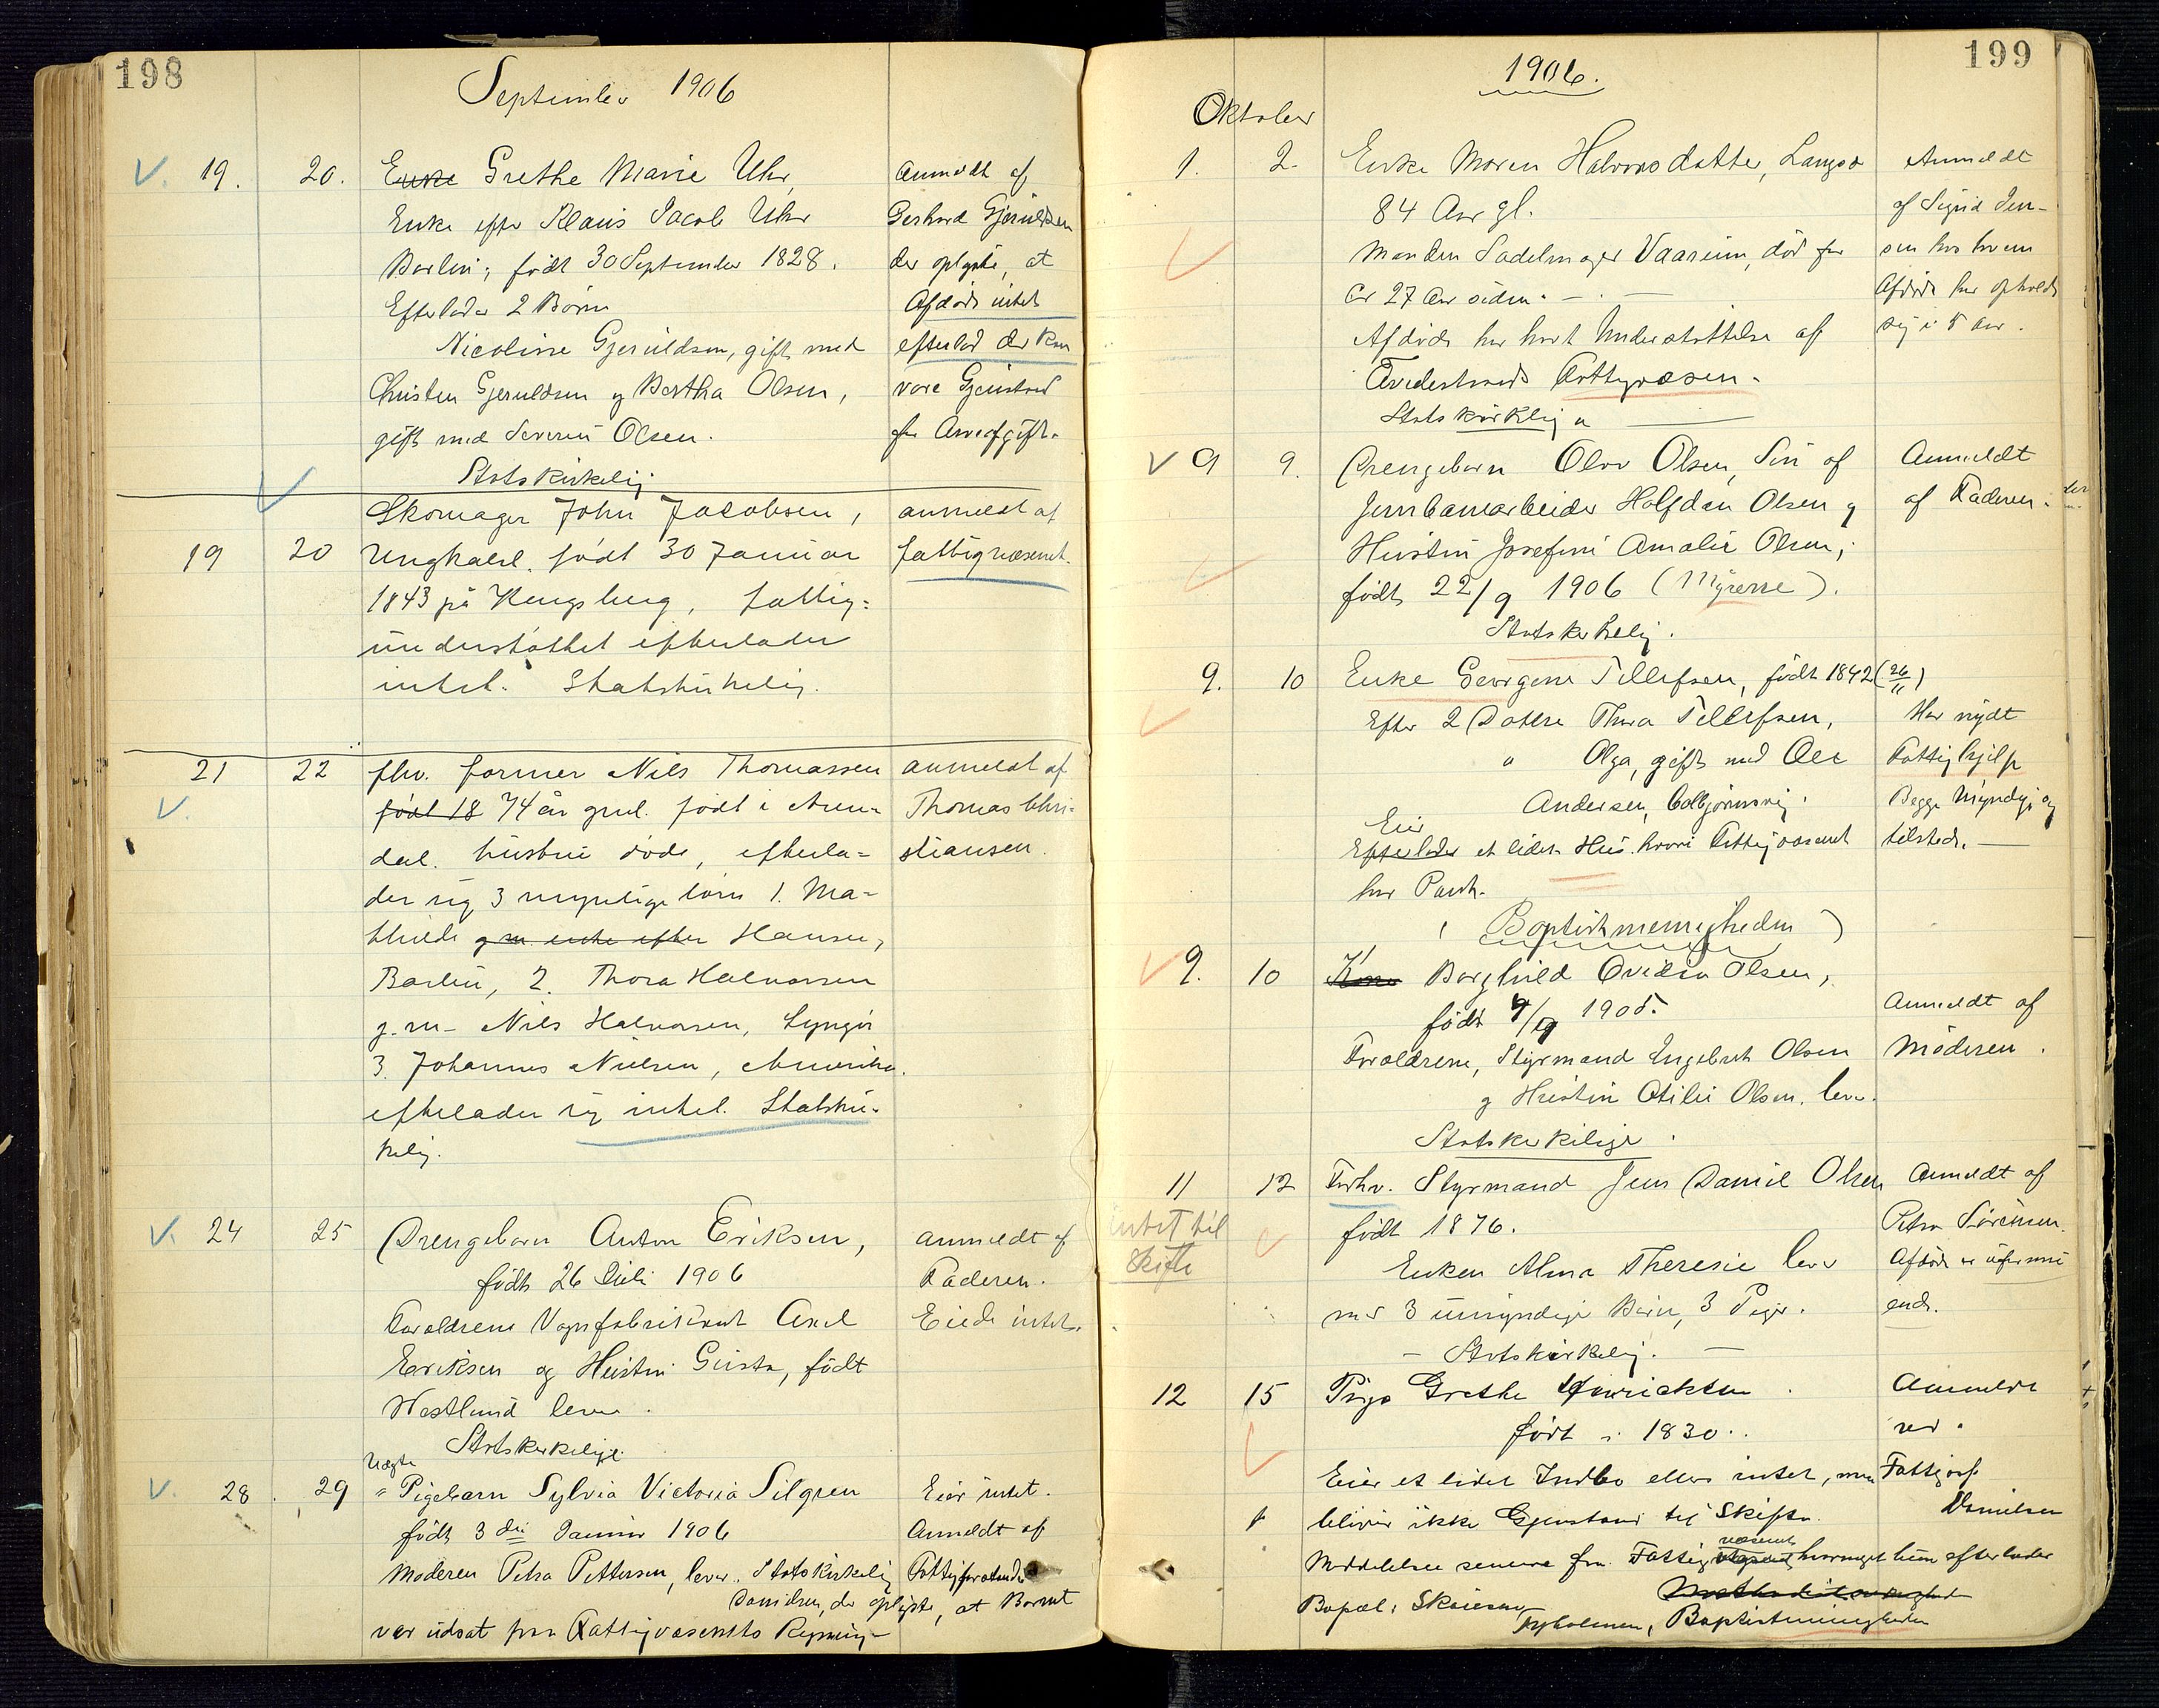 198
September 1906
19. 20. Enke Grethe Marie Uhr, Anmeldt af
Enke efter Klaus Jacob Uhr Gerhard Gjeruldsen
Barbu; født 30 September 1828. der oplyste, at
Efterlader 2 Børn Afdøde intet
Nicoline Gjeruldsen, gift med efterlod der kan
Christen Gjeruldsen og Bertha Olsen, være Gjenstand
gift med Severin Olsen. for Arveafgift.
Statskirkelig
Skomager John Jacobsen, anmeldt af
19 20 Ungkarl. født 30 Januar fattigvæsenet.
1843 på Kongsberg, fattig-
understøttet efterlader
intet. Statskirkelig.
21 22 fhv. former Nils Thomassen anmeldt af
født 18 74 år gml. født i Aren- Thomas Chri-
dal. hustru døde, efterla- stiansen.
der sig 3 myndige børn 1. Ma-
thilde g.m. enke efter Hansen,
Barbu, 2. Thora Halvorsen
g.m. Nils Halvorsen, Lyngør
3. Johannes Nielsen, Amerika.
efterlader sig intet. Statskir-
kelig.
24 25 Drengebarn Anton Eriksen, anmeldt af
født 26 Juli 1906 Faderen.
Forældrene Vognfabrikant Axel Eiede intet.
Eriksen og Hustru Gusta, født
Westlund lever.
Statskirkelige
Uægte
28. 29 " Pigebarn Sylvia Victoria Silgren Eier intet.
født 3 die Januar 1906 Anmeldt af
Moderen Petra Pettersen, lever. Statskirkelig Fattigforstander
Danielsen, der oplyste, at Barnet
var udsat paa Fattigvæsenets Regning
199
1906.
Oktober
1. 2. Enke Maren Halvorsdatter, Langsæ Anmeldt
84 Aar gl. af Sigrid Jen-
Manden Sadelmager Vaareim, død for sen hos hvem
ca 27 Aar siden. Afdøde har opholdt
Afdøde har havt Understøttelse af sig i 5 Aar.
Tvedestrands Fattigvæsen.
Statskirkelig
9 9. Drengebarn Olav Olsen, Søn af Anmeldt
Jernbanearbeider Halfdan Olsen og af Faderen.
Hustru Josefine Amalie Olsen,
født 22/9 1906 (Myrerne).
Statskirkelig.
9. 10 Enke Georgine Tellefsen, født 1842 (26/11)
Efter 2 Døtre Thora Tellefsen, Har nydt
" Olga, gift med Ole Fattighjelp
Andersen, Colbjørnsvig. Begge Myndige og
Eier
Efterlader et lidet Hus hvori Fattigvæsenet tilstede.
har Pant.
(Baptistmenigheden)
9. 10 Kone Borghild Ovidia Olsen,
født 4/9 1905. Anmeldt af
Forældrene, Styrmand Engebret Olsen Moderen.
og Hustru Otilie Olsen, lever.
Statskirkelige.
11 12 Forhv. Styrmand Jens Daniel Olsen Anmeldt af
intet til født 1876. Petra Sørensen.
Skifte Enken Alma Theresie lever Afdøde er uformu-
med 3 umyndige Børn, 3 Piger. ende.
- Statskirkelig. -
12 15 Pige Grethe Henriksen. Anmeldt
født i 1830. ved
Eier et lidet Indbo ellers intet, men Fattigf.
bliver ikke Gjenstand til Skifte. Danielsen
væsenet
Meddelelse senere fra Fattig hvorvidt hun efterlader
Bopæl: Baptistmenigheden